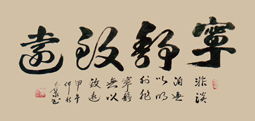 寧靜致遠
非淡
泊無
以明
志非
寧靜
無以
致遠
甲午
仲秋